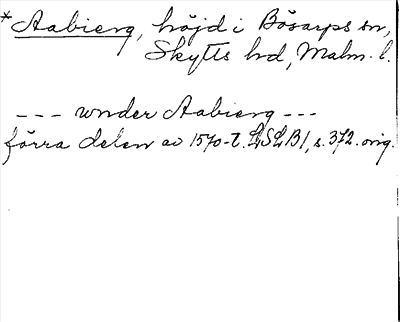 * Aabierg, höjd i Bösarps sn,
Skytts hd, Malm. l.
--- wnder Aabierg ---
förra delen av 1570-t. LSLB1, s. 372. orig.